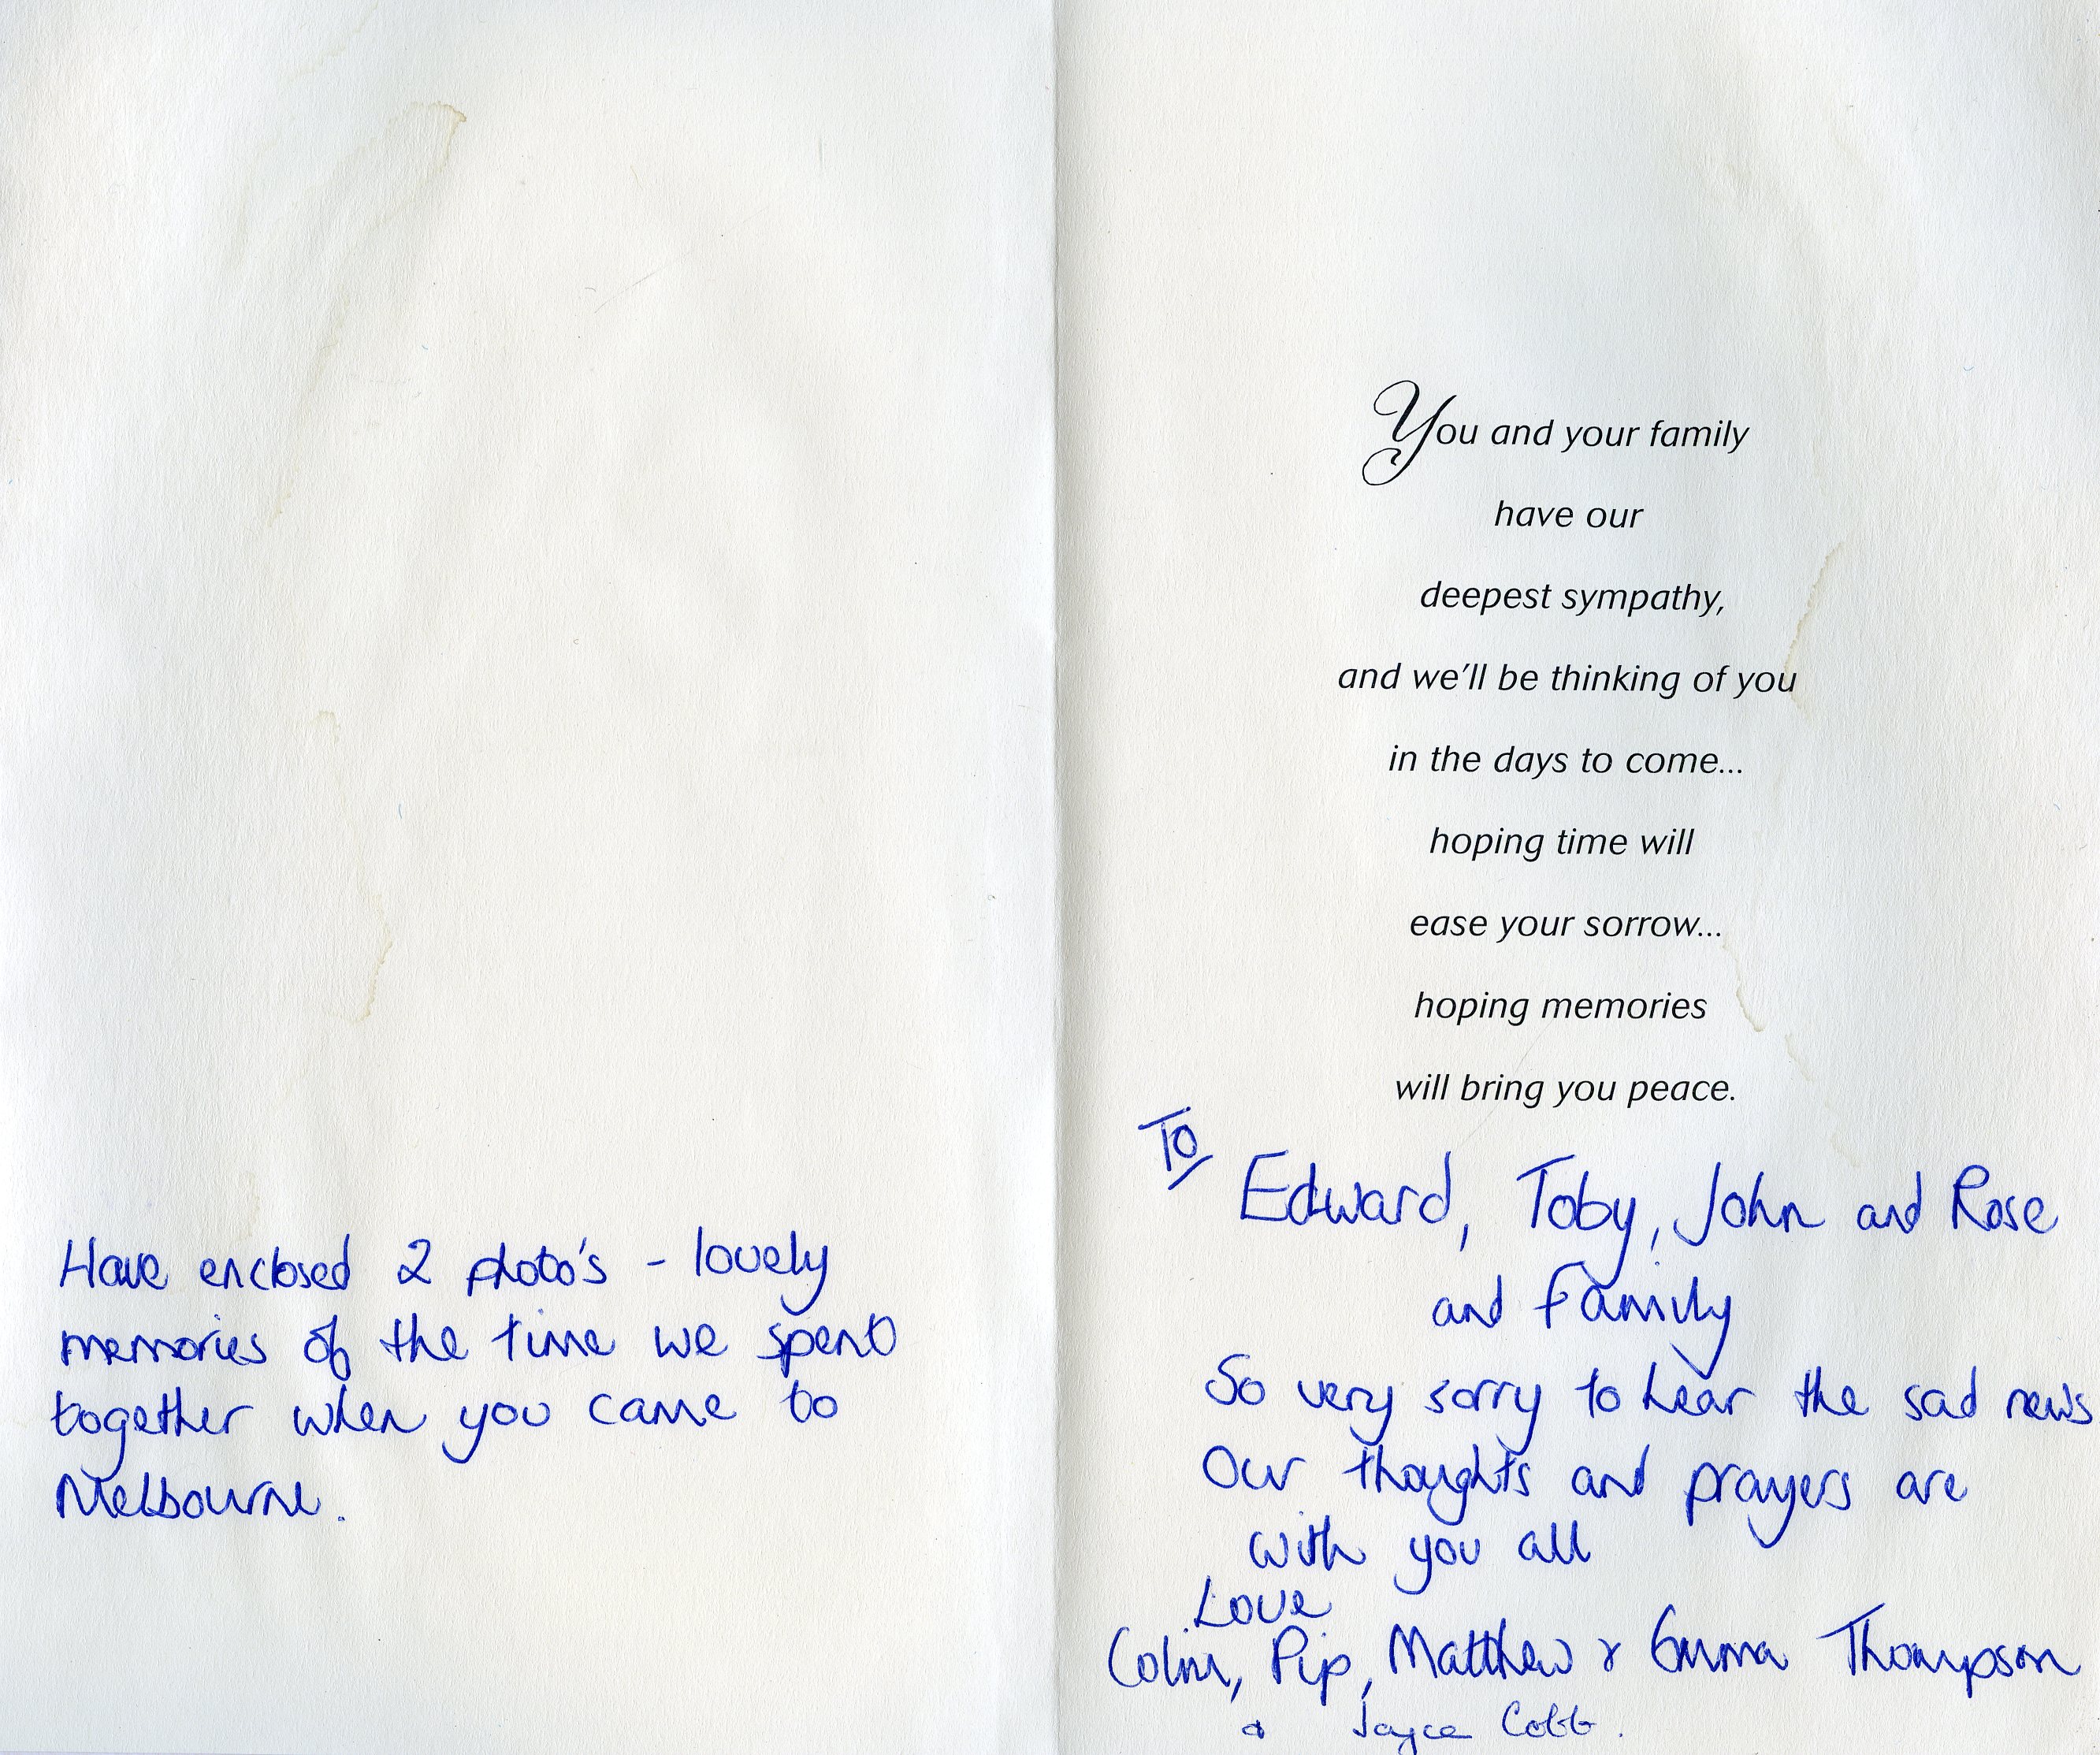 Have enclosed 2 photo's - lovely
memories of the time we spent
together when you came to
Melbourne.
You and your family
have our
deepest sympathy,
and we'll be thinking of you
in the days to come...
hoping time will
ease your sorrow...
hoping memories
will bring you peace.
To
Edward, Toby, John and Rose
and Family
So very sorry to hear the sad news
Our thoughts and prayers are
with you all
Love
Colin, Pip, Matthew & Emma Thompson
& Joyce Cobb.